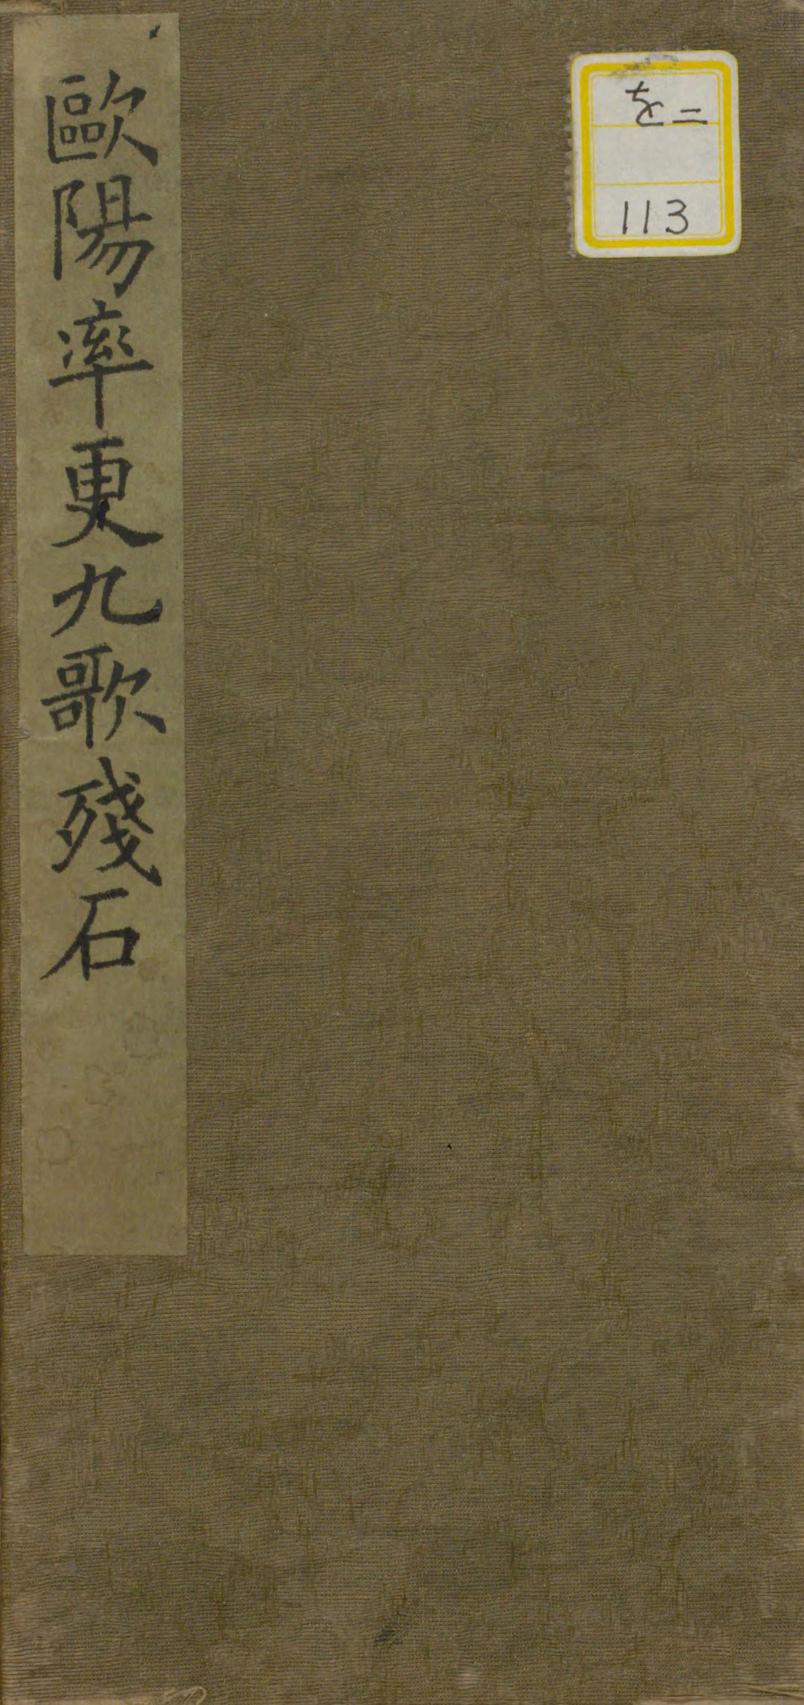 歐陽率更九歌殘石
を二
113